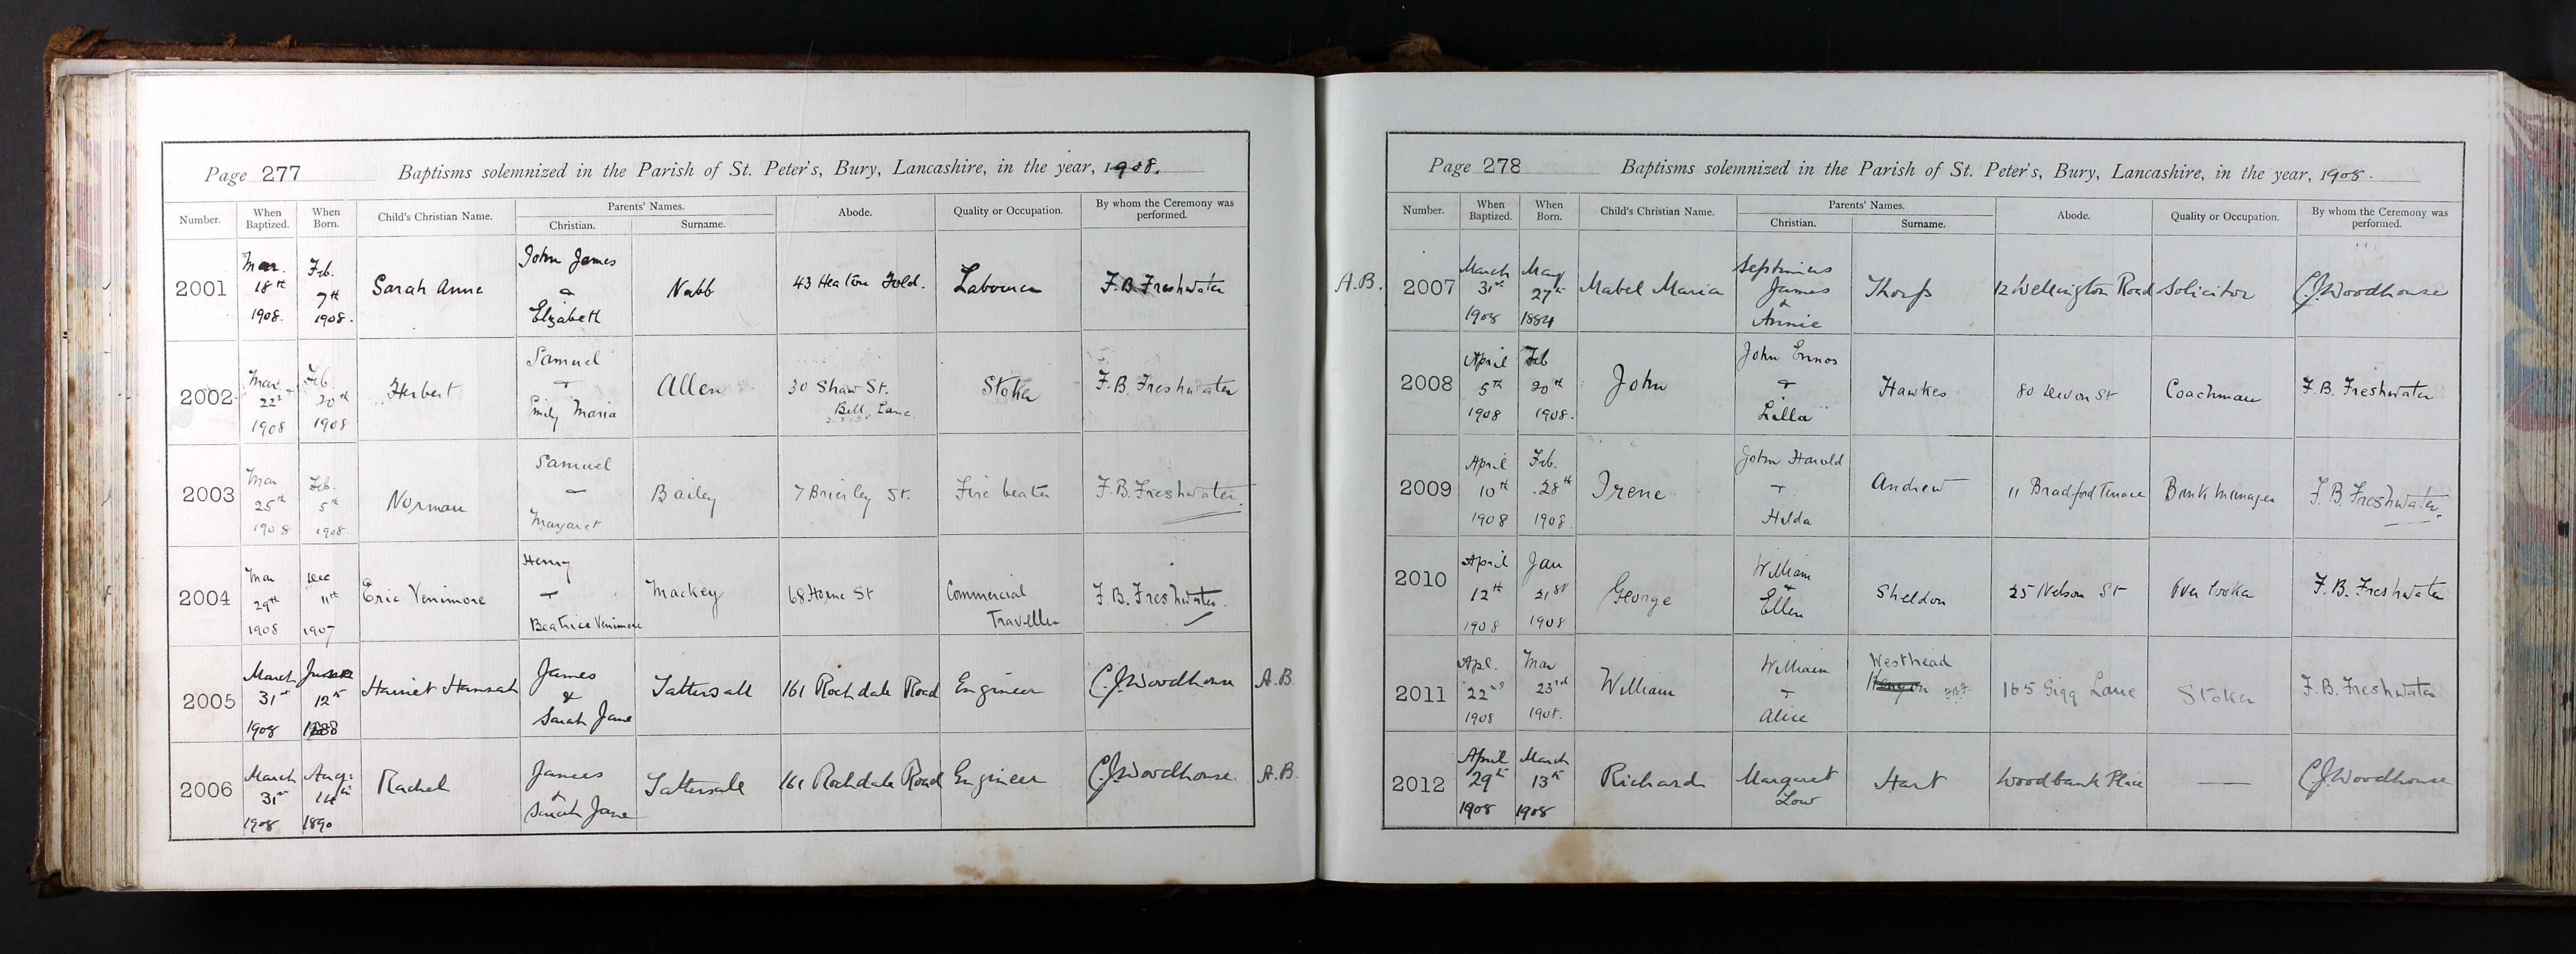 Page 277 Baptisms solemnized in the Parish of St. Peter's, Bury, Lancashire, in the year, 1908.
Number. When Baptized. When Born. Child's Christian Name. Parents' Names. Christian. Surname. Abode. Quality or Occupation. By whom the Ceremony was performed.
2001 Mar. 18th 1908. Feb. 7th 1908. Sarah Anne John James & Elizabeth Nabb 43 Heaton Fold. Labourer F.B. Freshwater
2002 Mar 22nd 1908 Feb. 20th 1908 Herbert Samuel & Emily Maria Allen 30 Shaw St. Bell Lane. Stoker F.B. Freshwater
2003 Mar 25th 1908 Feb. 5th 1908 Norman Samuel & Margaret Bailey 7 Brierley St. Fire beater F.B. Freshwater.
2004 Mar 29th 1908 Dec 11th 1907 Eric Venimore Henry & Beatrice Venimore Mackey 68 Horne St Commercial Traveller F.B. Freshwater.
2005 March 31st 1908 12th 1888 Harriet Hannah James & Sarah Jane Tattersall 161 Rochdale Road Engineer C.J. Woodhouse A.B.
2006 March 31st 1908 Aug: 14th 1890 Rachel James & Sarah Jane Tattersall 161 Rochdale Road Engineer C.J. Woodhouse. A.B.
Page 278 Baptisms solemnized in the Parish of St. Peter's, Bury, Lancashire, in the year, 1908.
Number. When Baptized. When Born. Child's Christian Name. Parents' Names. Christian. Surname. Abode. Quality or Occupation. By whom the Ceremony was performed.
A.B. 2007 March 31st 1908 May 27th 1884 Mabel Maria Septimius James & Annie Thorp 12 Wellington Road Solicitor C.J. Woodhouse
2008 April 5th 1908 Feb 20th 1908. John John Ennos & Lilla Hawkes 80 Devon St Coachman F.B. Freshwater
2009 April 10th 1908 Feb. 28th 1908. Irene John Harold & Hilda Andrew 11 Bradford Terrace Bank Manager F.B. Freshwater.
2010 April 12th 1908 Jan 21st 1908 George William & Ellen Sheldon 25 Nelson St Over looker F.B. Freshwater
2011 Apl. 22nd 1908 Mar 23rd 1908. William William & Alice Westhead Kenyon 165 Gigg Lane Stoker F.B. Freshwater
2012 April 29th 1908 March 13th 1908 Richard Margaret Low Hart Woodbank Place — C.J. Woodhouse